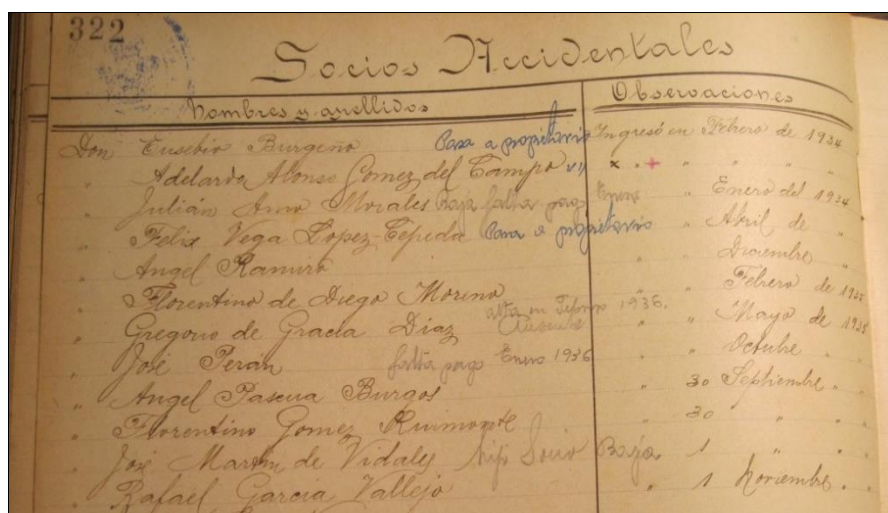 322
Socios Accidentales
Nombres y apellidos Observaciones
Don Eusebio Burgeño Pasa a propietario Ingresó en Febrero de 1934
" Adelardo Alonso Gomez del Campo " " " "
" Julián Amo Morales Baja falta pago Enero " Enero del 1934
" Félix Vega Lopez-Cepeda Pasa a propietario " Abril de "
" Angel Ramiro " " Diciembre "
" Florentino de Diego Moreno " " Febrero de 1935
" Gregorio de Gracia Diaz alta en 1936. " " Mayo de 1935
" José Terán falta pago Enero 1936 " " Octubre " "
" Angel Pascua Burgos " 30 Septiembre " "
" Florentino Gomez " 30 " " "
" José Martin de Vidales hijo Socio Baja 1 " " "
" Rafael Garcia Vallejo " 1 Noviembre " "